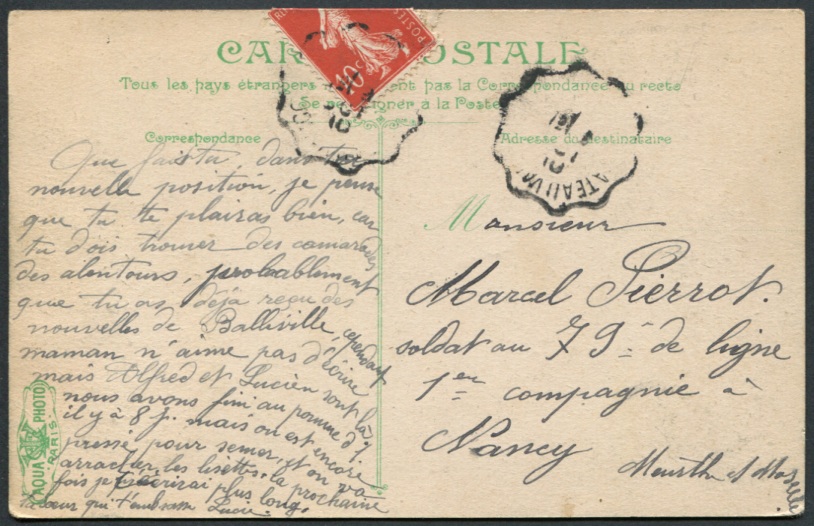 CARTE POSTALE
Tous les pays étrangers n' ent pas la Correspondance au recto
Se renseigner à la Poste
POSTES
10c
Correspondance
Adresse du destinataire
Que fais tu, dans ta
nouvelle position, je pense
que tu te plairas bien, car
tu dois trouver des camarades
des alentours, probablement
que tu as déjà reçu des
nouvelles de Balliville, cependant
maman n'aime pas d'écrire
mais Alfred et Lucien sont là
nous avons fini au pomme d. t.
il y à 8 j. mais on est encore
pressé pour semer, et on va
arracher les lisettes. la prochaine
fois je t'écrirai plus long.
ta sœur qui t'embrasse Lucie.
Monsieur
Marcel Pierrot.
soldat au 79e de ligne
1ere compagnie à
Nancy
Meurthe et Moselle
AQUA PHOTO
PARIS